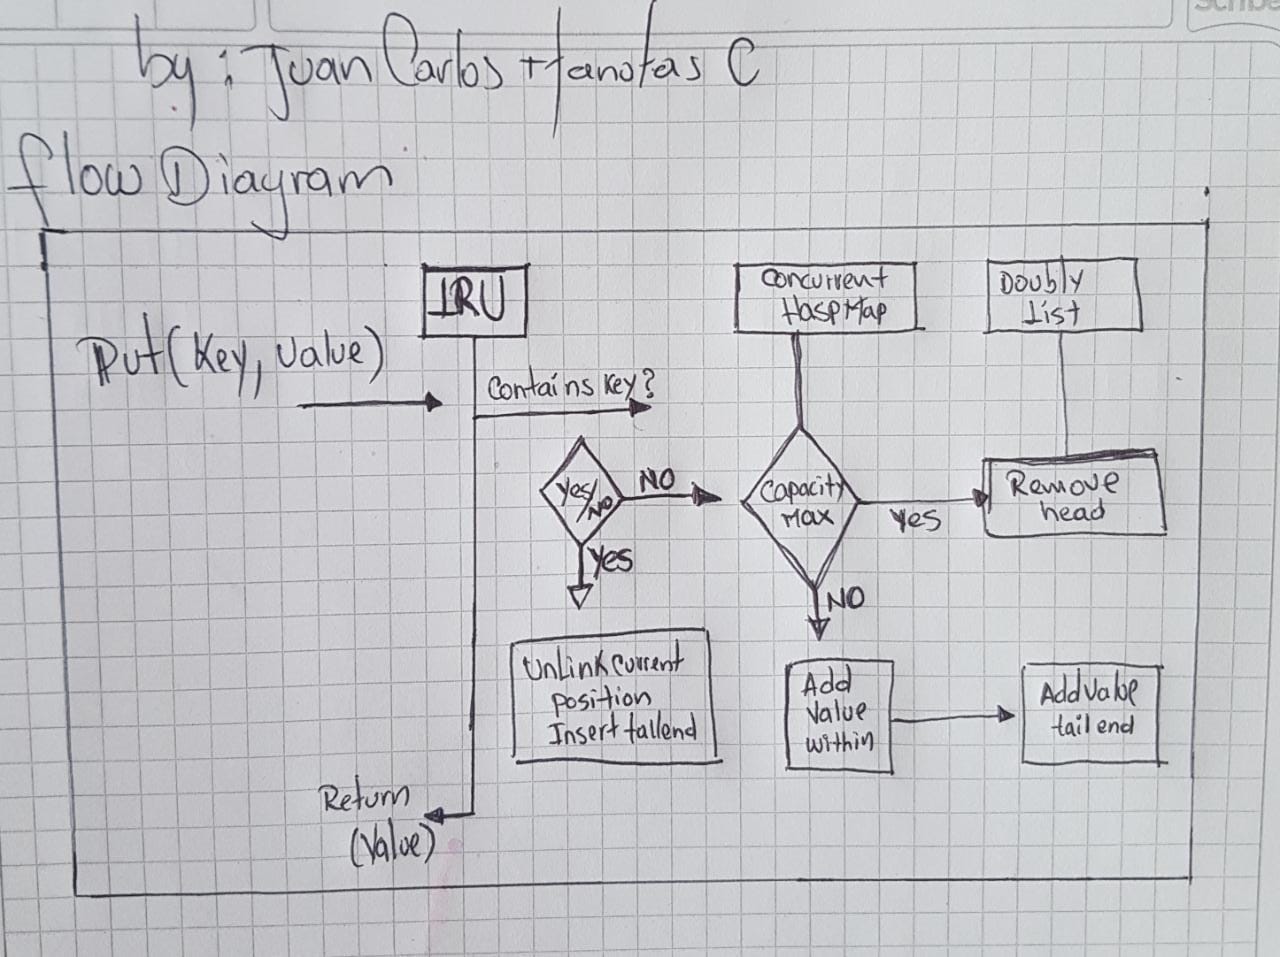 by: Juan Carlos
C
flow Diagram
LRU
Concurrent
HaspMap
Doubly
List
Put(Key, Value)
Contains Key?
Yes/
NO
NO
Capacity
Max
Yes
Remove
head
Yes
NO
UnLink Current
position
Insert tallend
Add
Value
within
Add Value
tail end
Return
(Value)